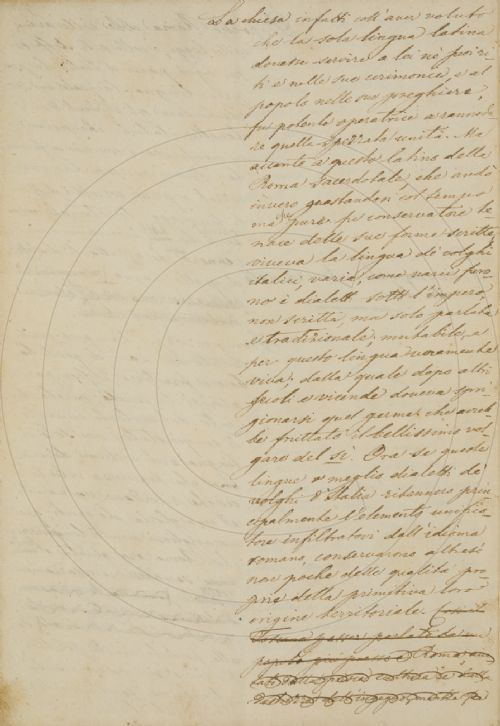 La chiesa infatti coll'aver voluto
che la sola lingua latina
dovesse servire a lei ne' suoi ri-
ti e nelle sue cerimonie, e al
popolo nelle sue preghiere,
fu potente operatrice a
re quella spezzata unità. Ma
accanto a questo latino della
Roma sacerdotale che andò
invero guastandosi col tempo
ma pure fu conservatore te-
nace delle sue forme scritte,
viveva la lingua de' volghi
italici, varia, come varii furo-
no i dialetti sotto l'impero,
non scritta, ma solo parlata
e tradizionale; mutabile, e
per questo lingua veramente
viva; dalla quale dopo alti
secoli e vicende doveva spri-
gionarsi quel germe che avreb-
be fruttato il bellissimo vol-
gare del sì. Ora se queste
lingue o meglio dialetti de'
volghi d'Italia ritennero prin-
cipalmente l'elemento unifica-
tore infiltratovi dall'idioma
romano, conservarono altresì
non poche delle qualità pro-
prie della primitiva loro
origine territoriale.
parlata da un
popolo più presso a Roma